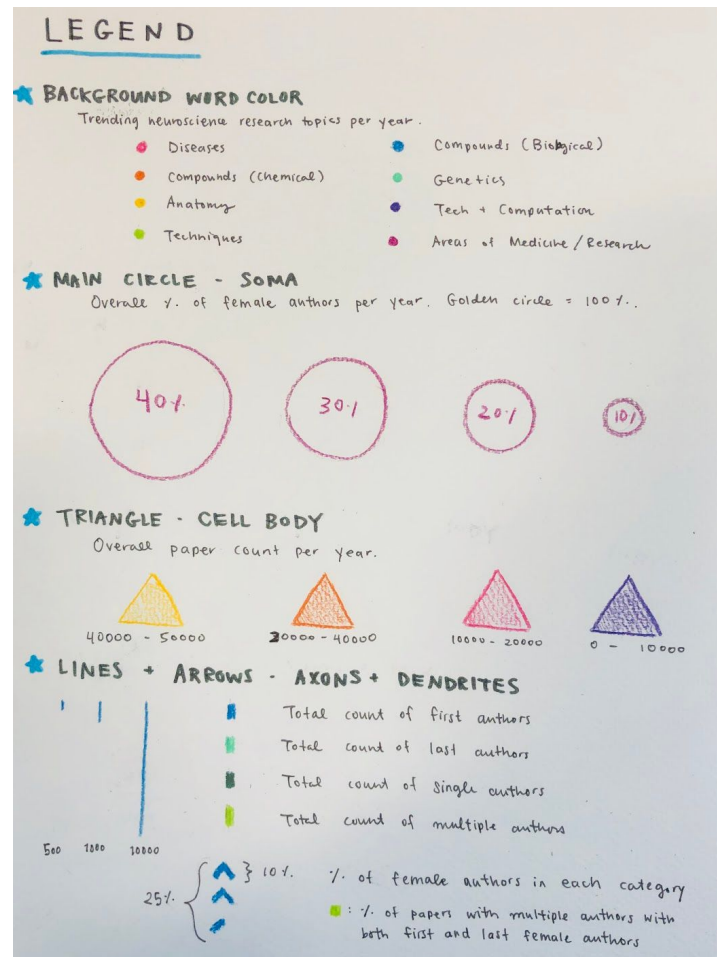 LEGEND
BACKGROUND WORD COLOR
Trending neuroscience research topics per year.
Diseases
Compounds (Chemical)
Anatomy
Techniques
Compounds (Biological)
Genetics
Tech + Computation
Areas of Medicine / Research
MAIN CIRCLE - SOMA
Overall % of female authors per year. Golden circle = 100%.
40%
30%
20%
10%
TRIANGLE - CELL BODY
Overall paper count per year.
40000 - 50000
30000 - 40000
10000 - 20000
0 - 10000
LINES + ARROWS - AXONS + DENDRITES
500
1000
10000
Total count of first authors
Total count of last authors
Total count of single authors
Total count of multiple authors
25%
10%
% of female authors in each category
: % of papers with multiple authors with
both first and last female authors